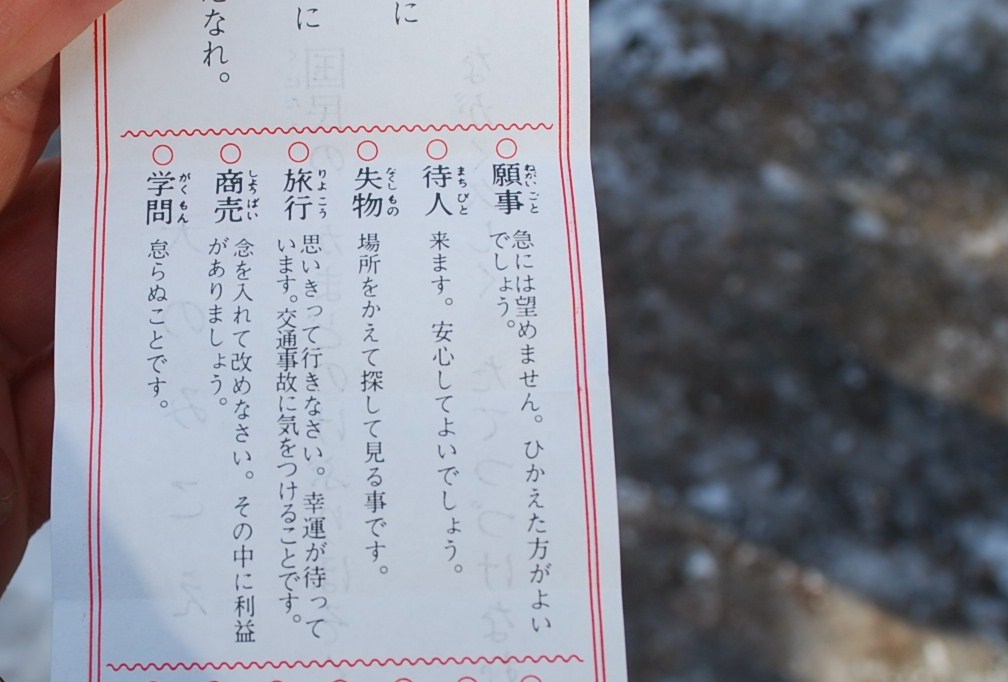 に
に
なれ。
願事
ねがいごと
急には望めません。ひかえた方がよい
でしょう。
待人
まちびと
来ます。安心してよいでしょう。
失物
場所をかえて探して見る事です。
旅行
りょこう
思いきって行きなさい。幸運が待って
います。交通事故に気をつけることです。
商売
しょうばい
念を入れて改めなさい。その中に利益
がありましょう。
学問
がくもん
怠らぬことです。